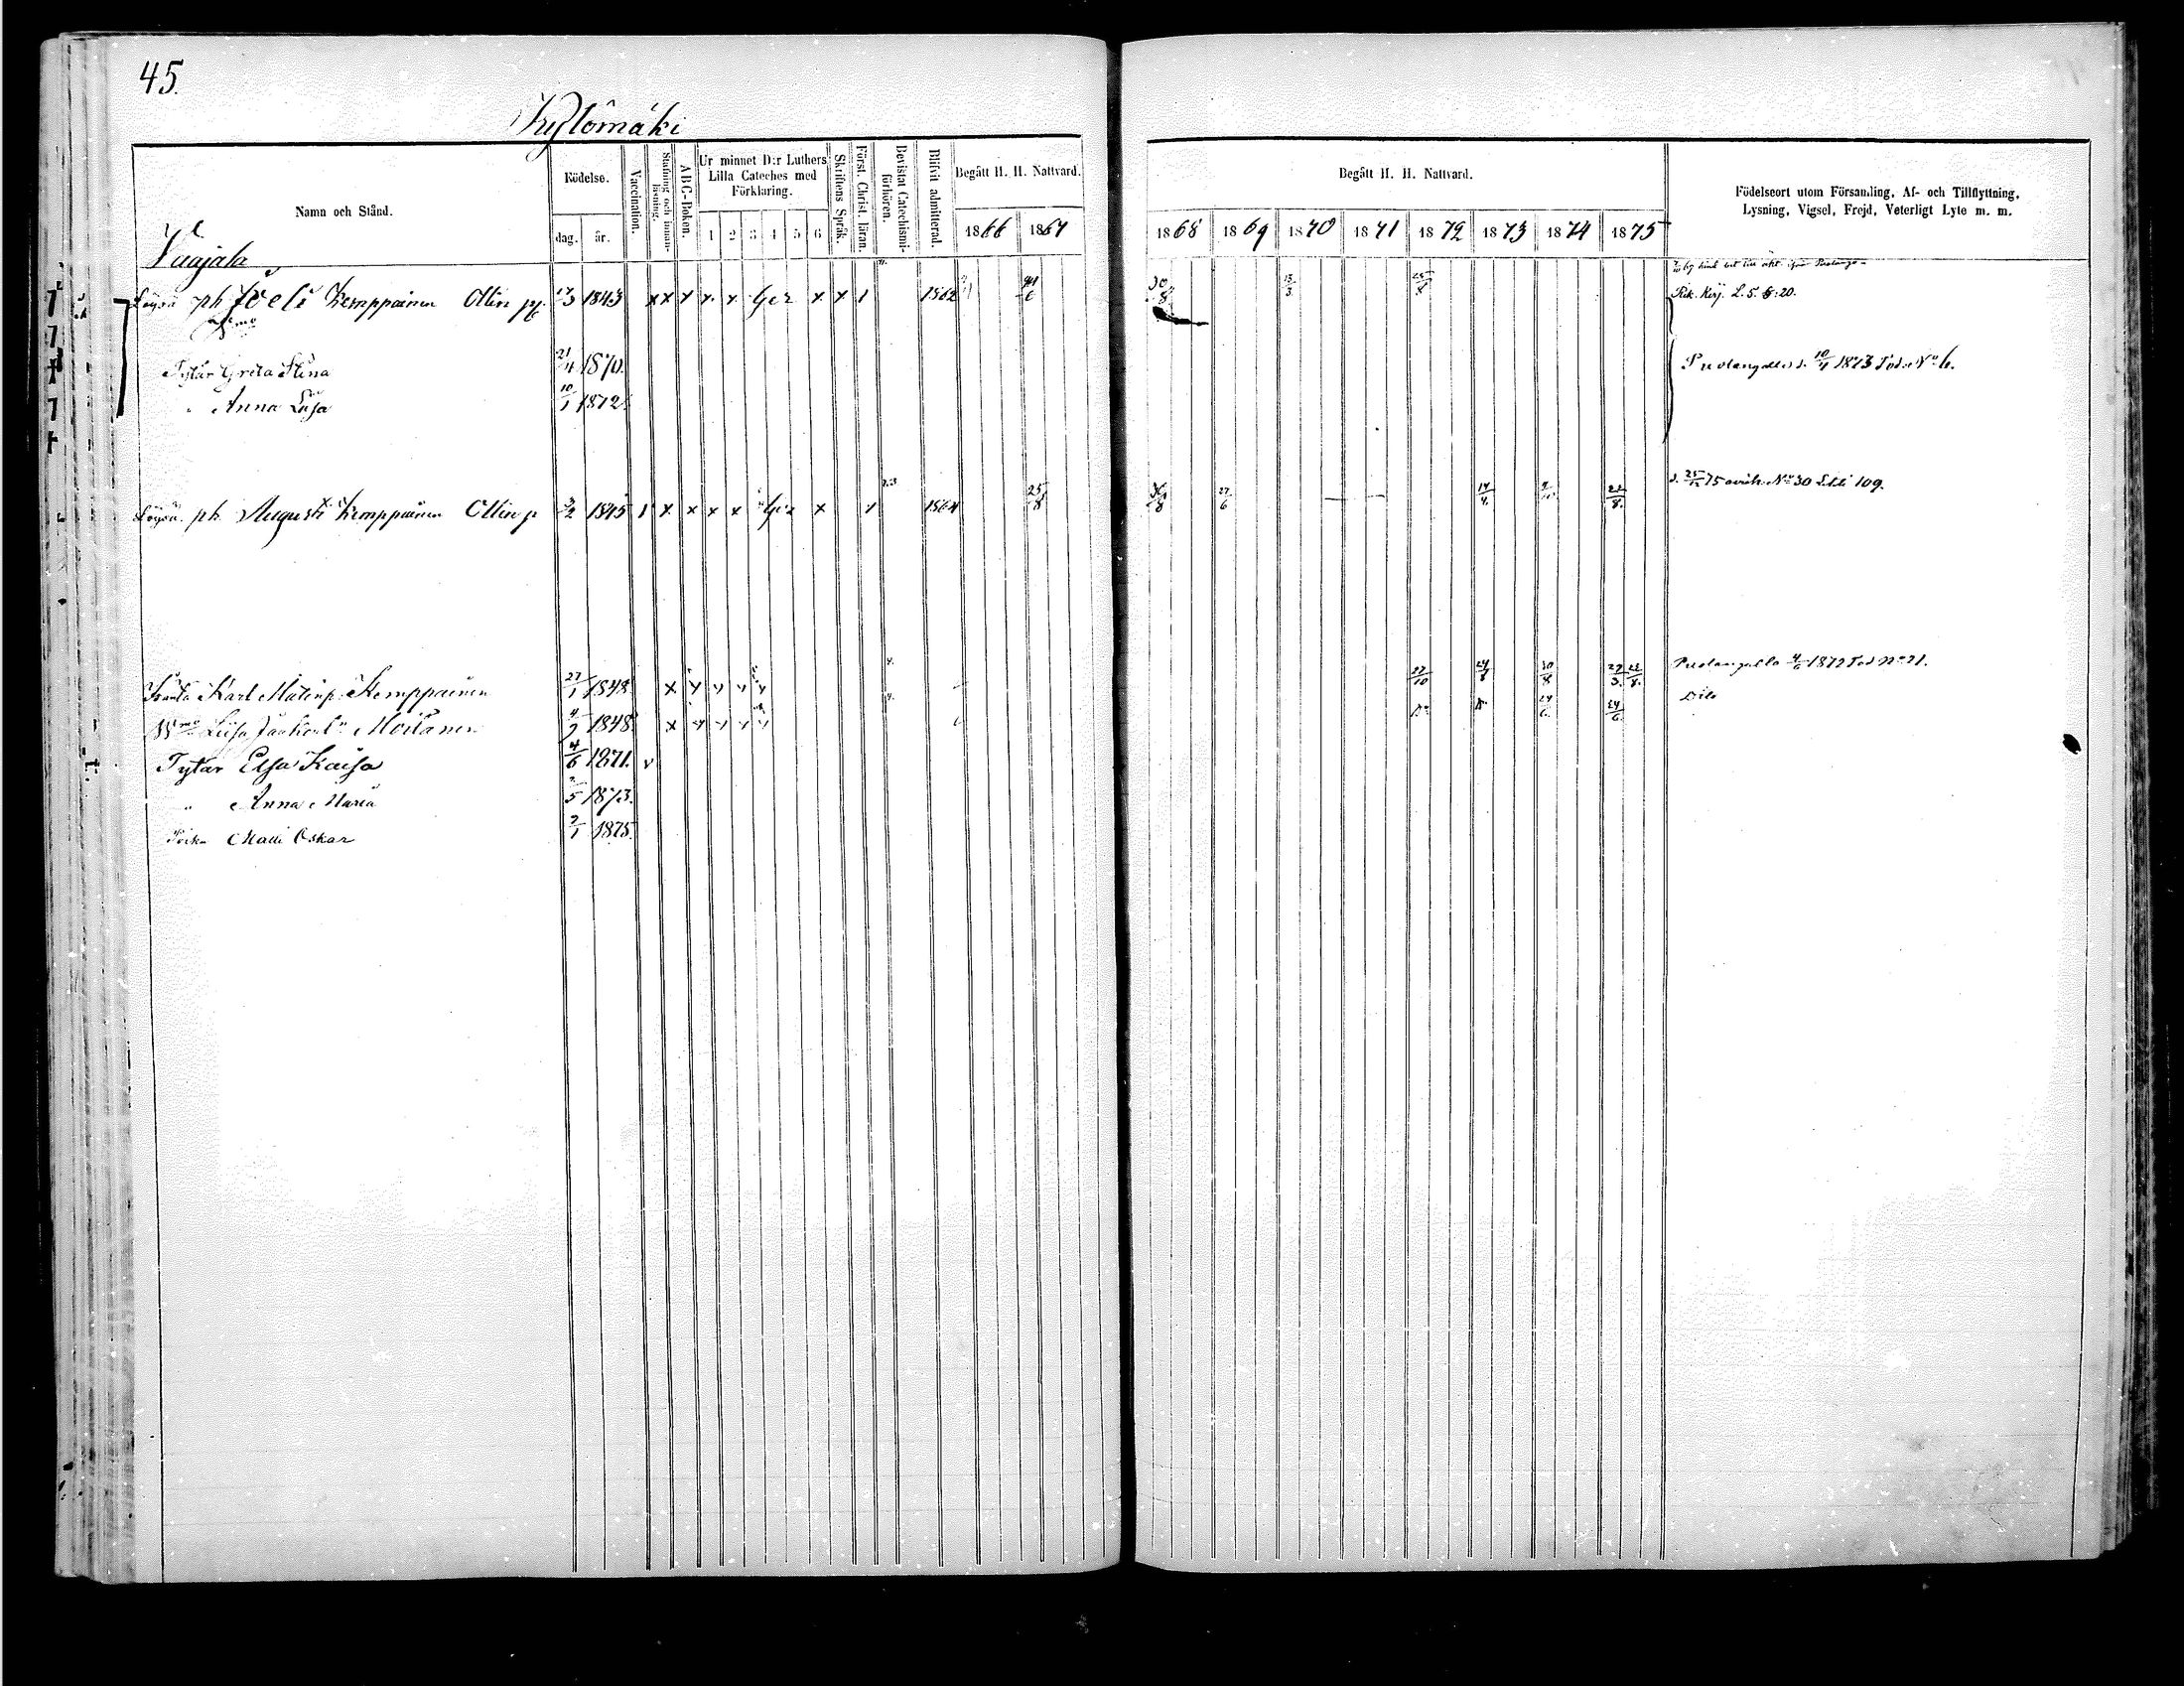 45.
Kytömäki
Namn och Stånd.
Födelse.
dag.
år.
Vaccination.
Stafning och innan-läsning.
ABC-Boken.
Ur minnet D:r Luthers Lilla Cateches med Förklaring.
1 2 3 4 5 6
Skriftens Språk.
Först. Christ. läran.
Bevistat Catechismi-förhören.
Blifvit admitterad.
Begått H. H. Nattvard.
1866 1867
Begått H. H. Nattvard.
1868 1869 1870 1871 1872 1873 1874 1875
Födelseort utom Församling, Af- och Tillflyttning,
Lysning, Vigsel, Frejd, Veterligt Lyte m. m.
Vaajala
Löysä ph Joeli Kemppainen Ollin p 17/3 1843 x x x x x Ger x x 1 1862 30/8 13/3 25/8 Rik. Kirj. L. 5. S:20.
Tytär Greta Stina 21/4 1870. Puolangalle s. 10/4 1873 Tod. No 6.
" Anna Lisa 10/1 1872.
Löysä ph August Kemppainen Ollin p 3/2 1845 1 x x x x Ger x 1864 25/8 27/6 — — 14/4 22/8. s. 25/12 75 No 30 109.
Karl Matinp. Kemppainen 27/1 1848. x 22/10 24/8 30/8 27/3. 22/8. Puolangalta 4/6 1872 Tod No 21.
Wmo Liisa Moilanen 4/9 1848. x 24/6 24/6 Dito
Tytär Elsa Kaisa 4/6 1871. v
" Anna Maria 2/5 1873.
Poika Matti Oskar 2/1 1875.